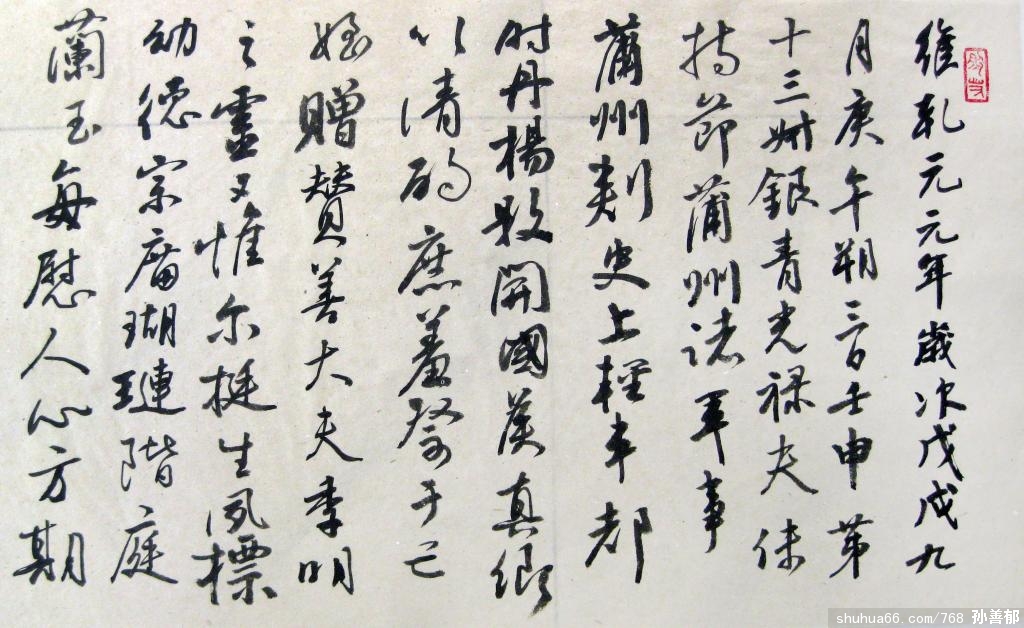 維乾元元年歲次戊戌九
月庚午朔三日壬申第
十三叔銀青光祿夫使
持節蒲州諸軍事
蒲州刺史上輕車都
尉丹楊縣開國侯真卿
以清酌庶羞祭于亡
姪贈贊善大夫季明
之靈惟尔挺生夙標
幼德宗廟瑚璉階庭
蘭玉每慰人心方期
shuhua66.com/768 孙善郁